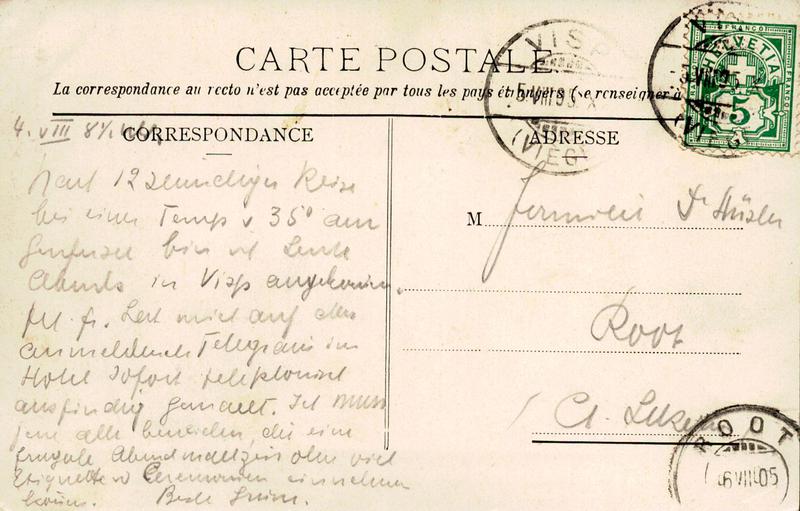 CARTE POSTALE
La correspondance au recto n'est pas acceptée par tous les pays étrangers (Se renseigner à
CORRESPONDANCE
ADRESSE
4. VIII
Nach 12 stündiger Reise
bei einer Temp v 35° am
Genfersee bin ich heute
Abends in Visp angekommen.
Frl. fr. hat mich auf das
anmeldende Telegram im
Hotel sofort telephonisch
ausfindig gemacht. Ich muss
jene alle beneiden, die eine
frugale Abendmahlzeit ohne viel
Etiquette u Ceremonien einnehmen
können.
M
Dr
Root
Ct. Luzern
VISP
5.VIII.05
(VIEGE)
HELVETIA
FRANCO
5
ROOT
6.VIII.05